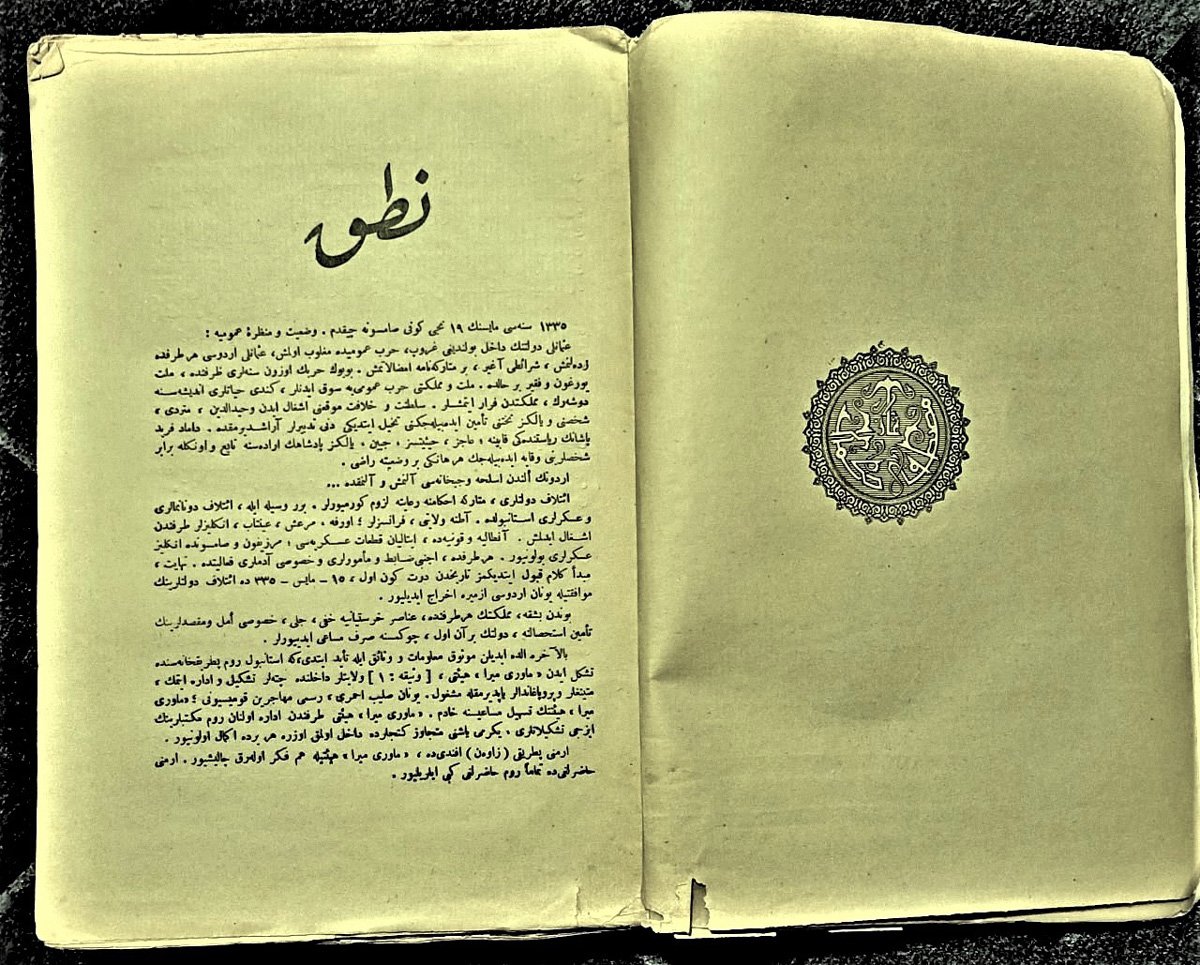 نطق
١٣٣٥ سنه‌سی مایسنك ١٩ نجی كونی صامسونه چیقدم . وضعیت و منظرهٔ عمومیه :
عثمانلی دولتنك داخل بولندیغی غروپ، حرب عمومیده مغلوب اولمش، عثمانلی اردوسی هر طرفده
زده‌لنمش ، شرائطی آغیر ، بر متاركه‌نامه امضالانمش . بویوك حربك اوزون سنه‌لری ظرفنده ، ملت
یورغون و فقیر بر حالده . ملت و مملكتی حرب عمومی‌یه سوق ایدنلر ، كندی حیاتلری اندیشه‌سنه
دوشه‌رك ، مملكتدن فرار ایتمشلر . سلطنت و خلافت موقعنی اشغال ایدن وحیدالدین ، متردی ،
شخصنی و یالكز تختنی تأمین ایده‌بیله‌جكنی تخیل ایتدیكی دنی تدبیرلر آراشدیرمقده . داماد فرید
پاشانك ریاستنده‌كی قابینه ؛ عاجز ، حیثیتسز ، جبین . یالكز پادشاهك اراده‌سنه تابع و اونكله برابر
شخصلرینی وقایه ایده‌بیله‌جك هر هانكی بر وضعیته راضی .
اردونك ألندن اسلحه وجبخانه‌سی آلنمش و آلنمقده ...
ائتلاف دولتلری ، متاركه احكامنه رعایته لزوم كورمیورلر . برر وسیله ایله ، ائتلاف دونانمالری
و عسكرلری استانبولده . آطنه ولایتی ، فرانسزلر ؛ اورفه ، مرعش ، عینتاب ، انكلیزلر طرفندن
اشغال ایدلمش . آنطالیه و قونیه‌ده ، ایتالیان قطعات عسكریه‌سی ؛ مرزیفون و صامسونده انكلیز
عسكرلری بولونیور . هر طرفده ، اجنبی ضابط و مأمورلری و خصوصی آدملری فعالیتده . نهایت ،
مبدأ كلام قبول ایتدیكمز تاریخدن دورت كون اول ، ١٥ – مایس – ٣٣٥ ده ائتلاف دولتلرینك
موافقتیله یونان اردوسی ازمیره اخراج ایدیلیور .
بوندن بشقه ، مملكتك هر طرفنده ، عناصر خرستیانیه خفی ، جلی ، خصوصی أمل ومقصدلرینك
تأمین استحصالنه ، دولتك بر آن اول ، چوكمسنه صرف مساعی ایدییورلر .
بالآخره الده ایدیلن موثوق معلومات و وثائق ایله تأید ایتدی‌كه استانبول روم پطریقخانه‌سنده
تشكل ایدن « ماوری میرا » هیئتی ، [ وثیقه : ١ ] ولایتلر داخلنده چته‌لر تشكیل و اداره ایتمك ،
متینغلر وپروپاغاندالر یاپدیرمقله مشغول . یونان صلیب احمری ، رسمی مهاجرین قومیسیونی ؛ «ماوری
میرا » هیئتنك تسهیل مساعیسنه خادم . « ماوری میرا » هیئتی طرفندن اداره اولنان روم مكتبلرینك
ایزجی تشكیلاتلری ، یكرمی یاشنی متجاوز كنجلرده داخل اولمق اوزره هر یرده اكمال اولونیور .
ارمنی پطریقی ( زاوەن ) افندی‌ده ، « ماوری میرا » هیئتیله هم فكر اوله‌رق چالیشیور . ارمنی
حاضرلغی‌ده تماماً روم حاضرلغی كبی ایلریلیور .